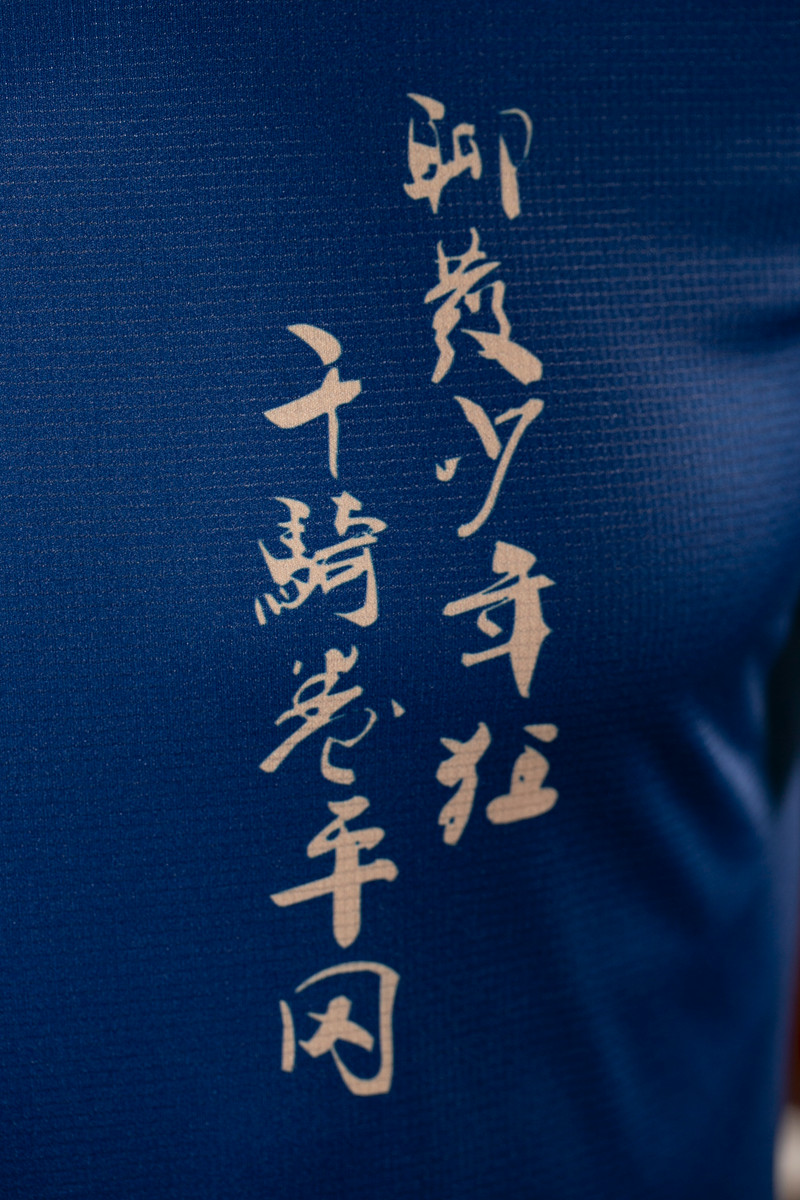 聊發少年狂
千騎卷平冈